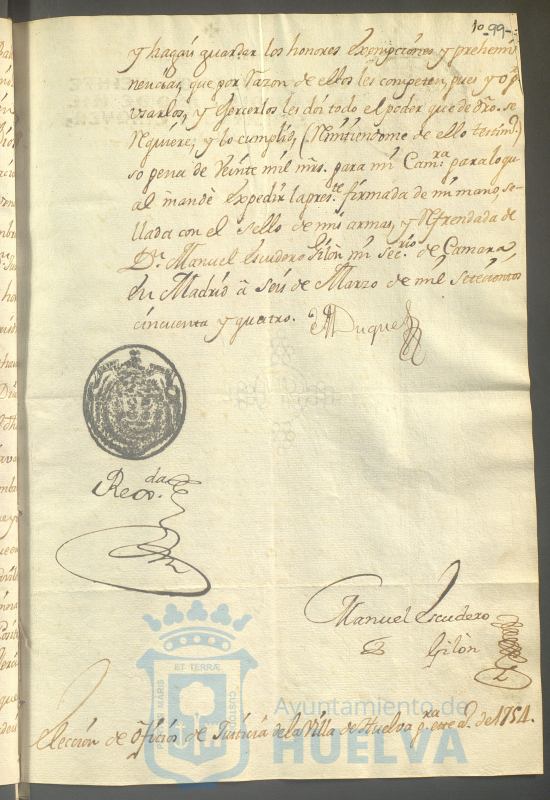 10-99-
y hagan guardar los honores Exempciones y prehemi
nencias, que por razon de ellos les competen, pues y o p.ª
vsarlos, y Exercerlos les doi todo el poder que de dro. se
requiere, y lo cumplid, (Remitiendome de ello testim.º)
so pena de Veinte mil mrs. para mi Cam.ra para lo qu
al mandè Expedir la pres.te firmada de mi mano, se-
llada con el sello de mis armas, y refrendada de
D.n Manuel Escudero Gilòn mi sec.rio de Camara,
En Madrid à Seis de Marzo de mil setecientos
cinquenta y quatro. El Duque
Reg.da
Manuel Escudero
Gilòn
ET TERRÆ
PORTUS MARIS
CUSTODIA
Ayuntamiento de
HUELVA
Elección de oficios de Justicia de la Villa de Huelva p.ra este a.º de 1754.